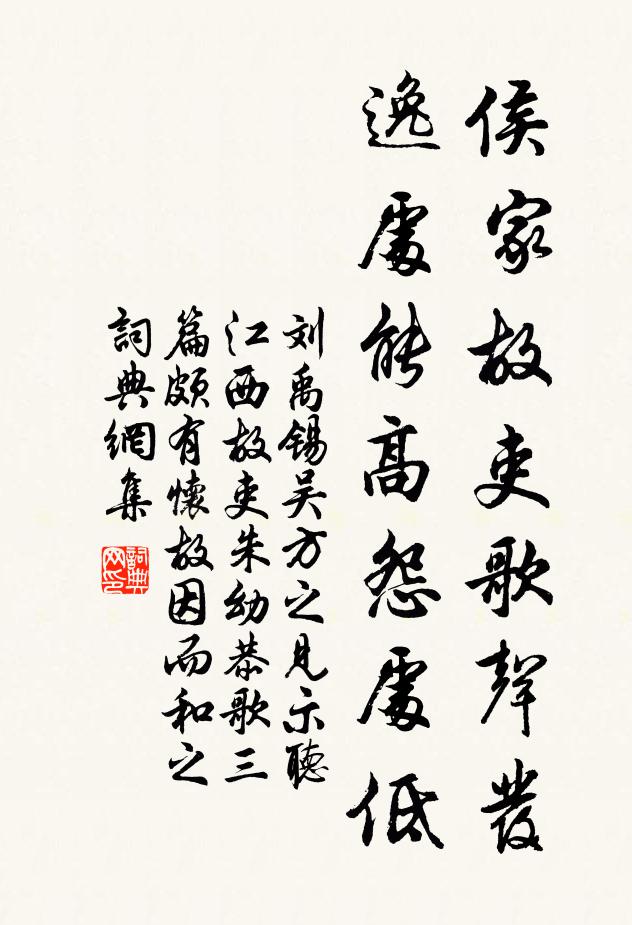 侯家故吏歌聲發
逸處能高怨處低
刘禹锡吴方之見示聽
江西故吏朱幼恭歌三
篇頗有懷故因而和之
詞典網集
詞典
网印